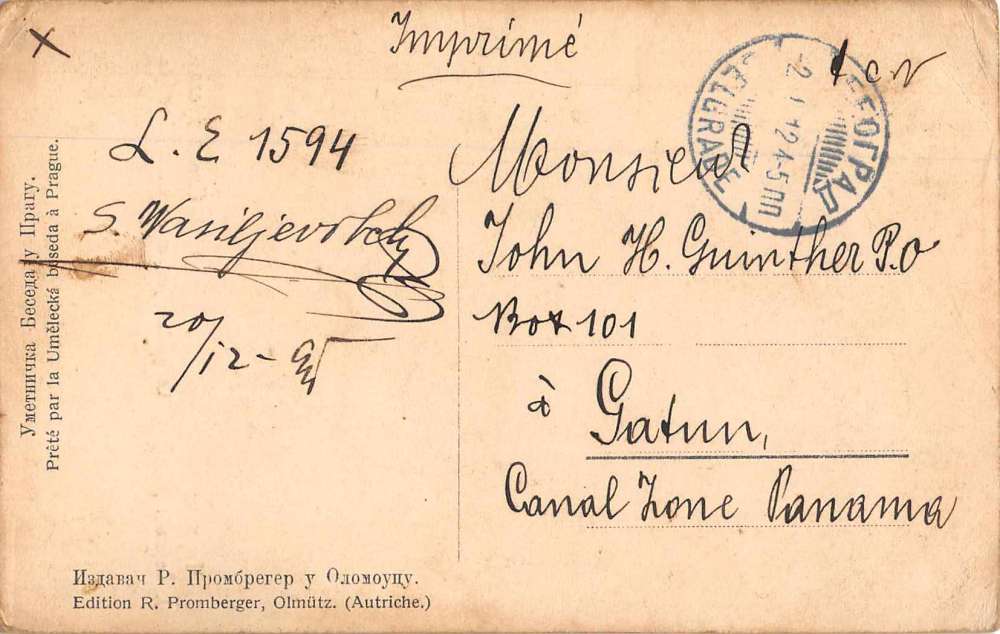 Imprimé
L. E 1594
20/12-
Monsieur
John H. Guinther P.o
Box 101
à
Gatun,
Canal Zone Panama
БЕОГРАД
BELGRADE
Уметничка Беседа у Прагу.
Prêté par la Umělecká beseda à Prague.
Издавач Р. Промбергер у Оломоуцу.
Edition R. Promberger, Olmütz. (Autriche.)